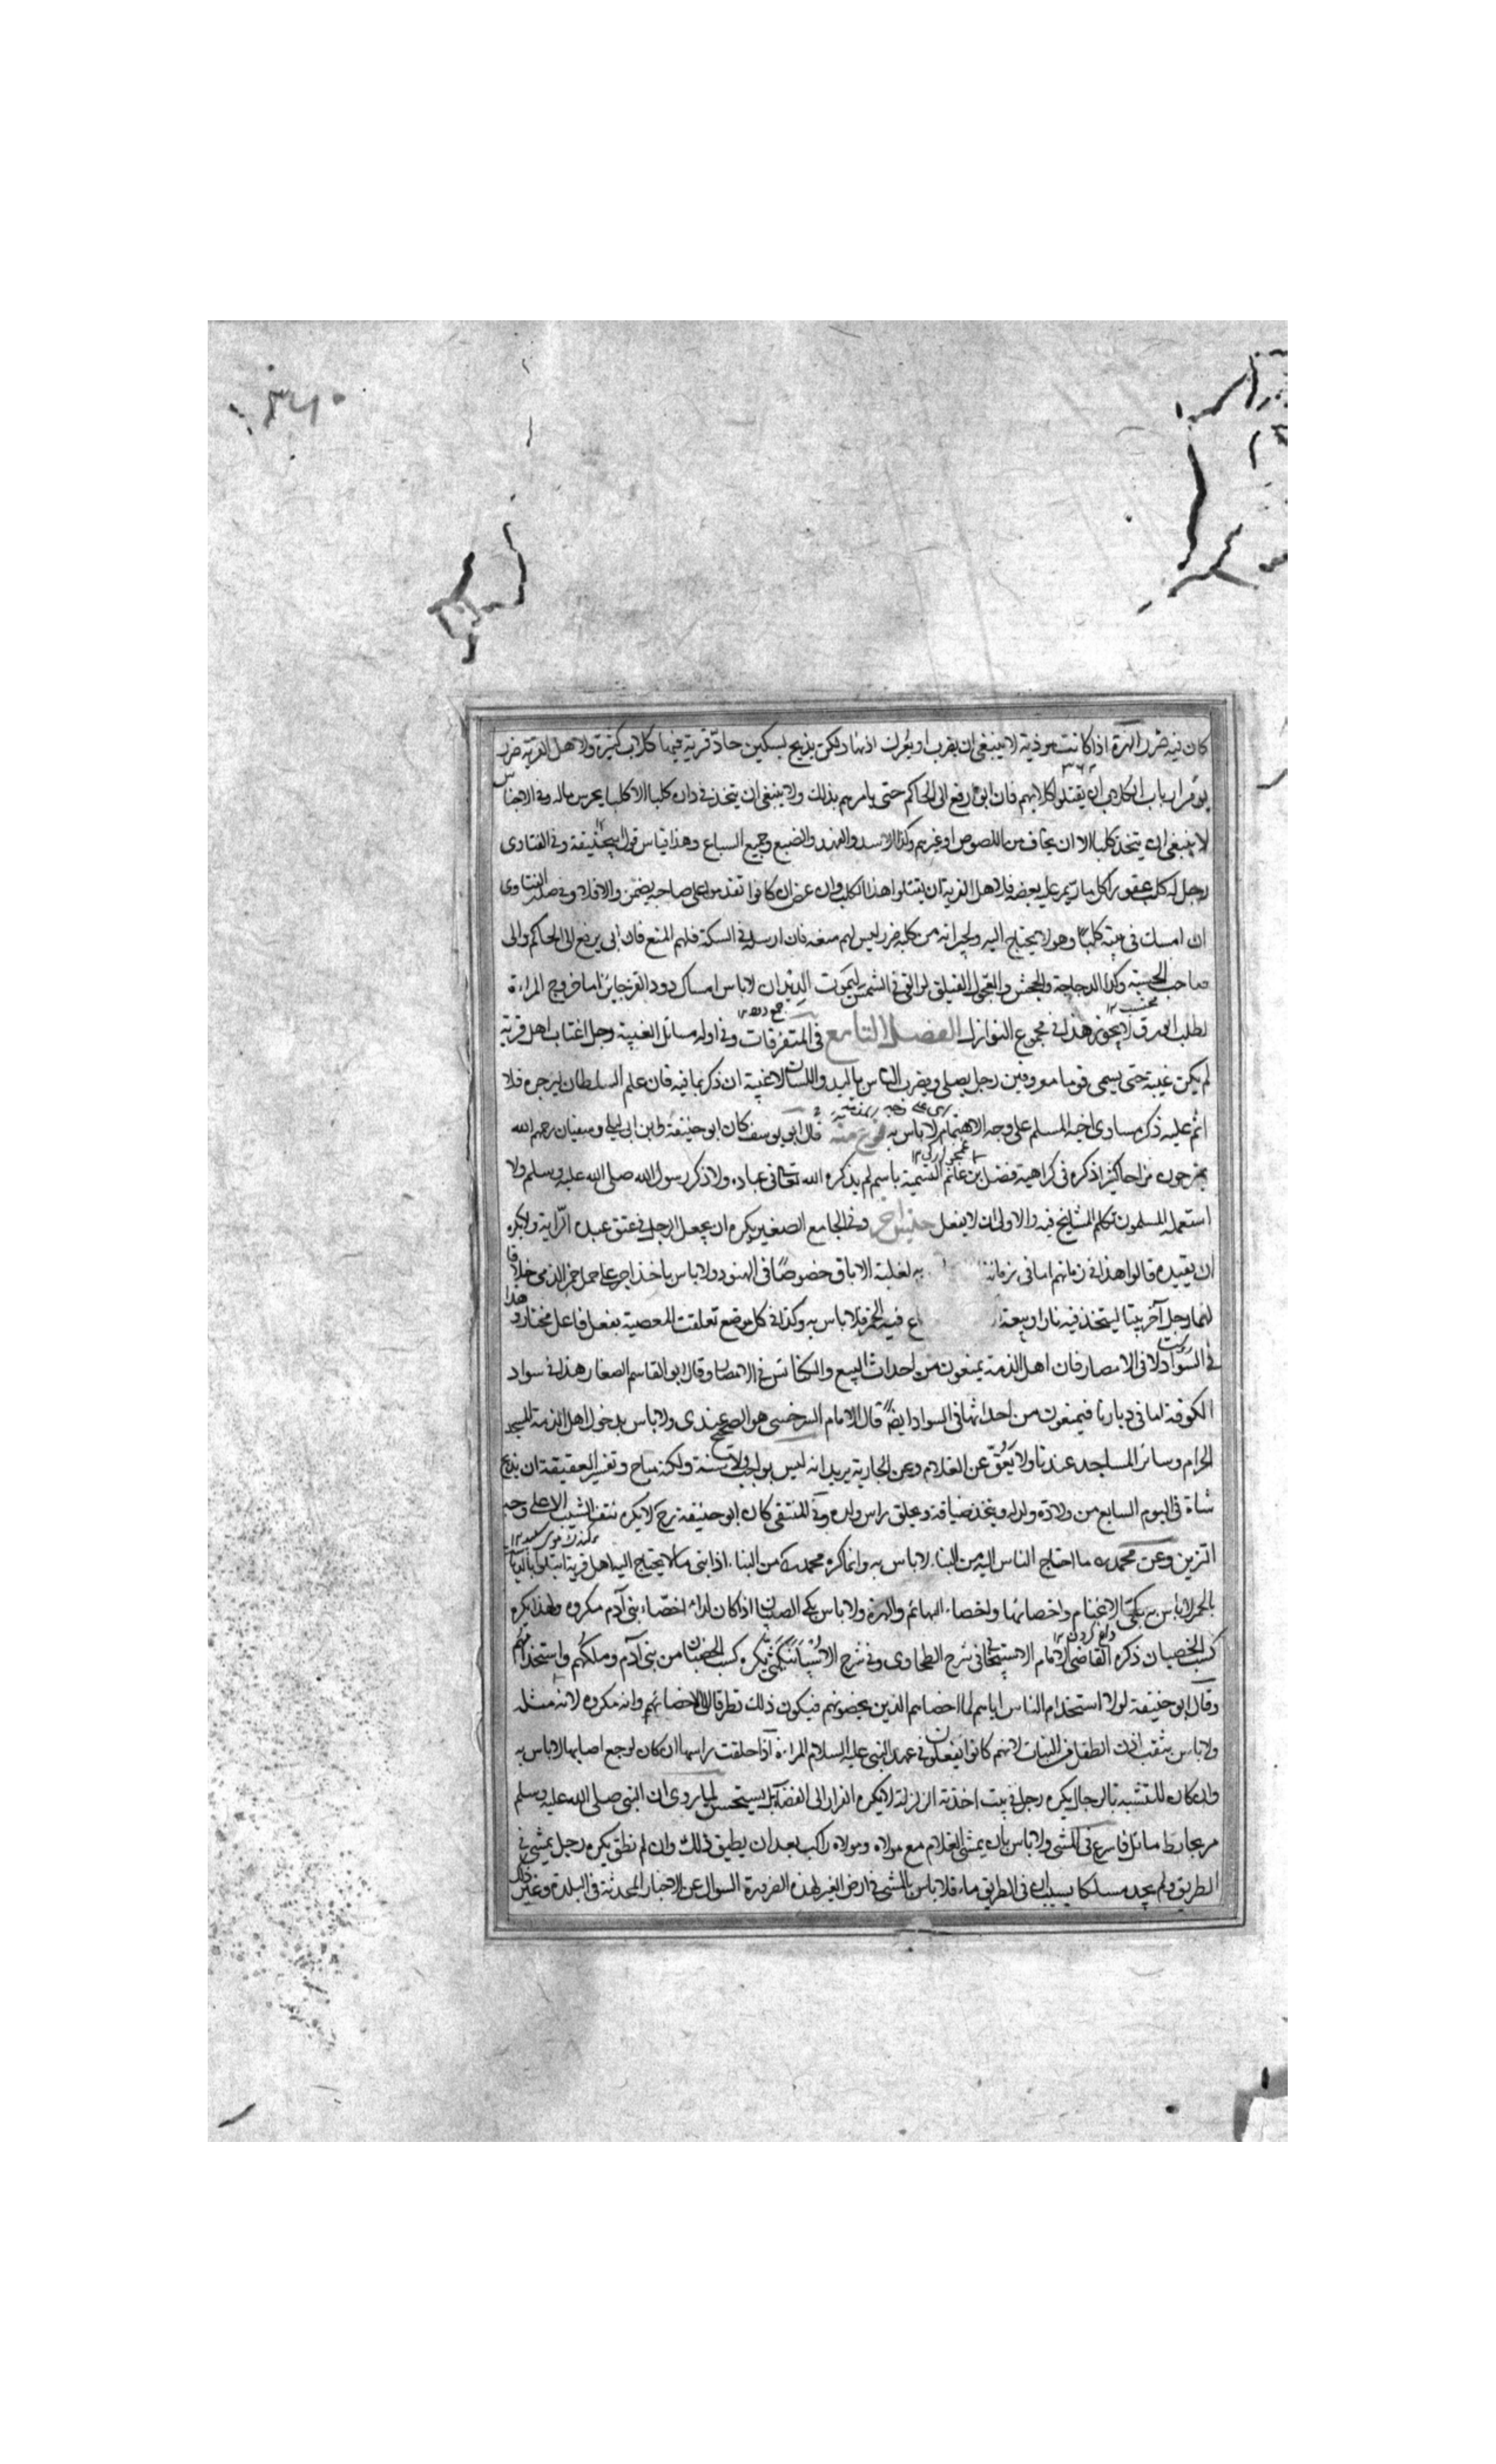 ٣٦٠
كان فيه ضرر الهرة اذا كانت موذية لا ينبغي ان يضرب او يعرك اذنها ولكن يذبح بسكين حاد قرية فيها كلاب كثيرة ولاهل القرية ضرر
يومر ارباب الكلاب ان يقتلوا كلابهم فان ابوا رفع الى الحاكم حتى يامرهم بذلك ولا ينبغي ان يتخذ في داره كلبا الا كلبا يحرس ماله وفي الاجناس
لا ينبغي ان يتخذ كلبا الا ان يخاف من اللصوص او غيرهم وكذا الاسد والفهد والضبع وجميع السباع وهذا قياس قول ابيحنيفة وفي الفتاوى
رجل له كلب عقور كل ما يمر عليه يعضه فلاهل القرية ان يقتلوا هذا الكلب وان عض ان كانوا تقدموا على صاحبه يضمن والا فلا وفي الفتاوى
ان امسك في بيته كلبا وهو لا يحتاج اليه ولجيرانه من كلبه ضرر ليس لهم منعه فان ارسله في السكة فلهم المنع فان ابى يرفع الى الحاكم والى
صاحب الحسبة وكذا الدجاجة والجحش والعجول الفيلق لو القي في الشمس ليموت الديدان لا باس امساك دود القز جائز اما فروج المراة
محتسب ١٢
لطلب لا يجوز هذا في مجموع النوازل الفصل التاسع في المتفرقات وفي اوله مسائل الغيبة رجل اغتاب اهل قرية
لم يكن غيبة حتى يسمى قوما معروفين رجل يصلي ويضرب الناس باليد واللسان لا غيبة ان ذكر بما فيه فان علم السلطان ليزجره فلا
اثم عليه ذكر مساوى اخيه المسلم على وجه الاهتمام لا باس به نوع منه قال ابو يوسف كان ابو حنيفة وابن ابي ليلى وسفيان رحمهم الله
يمزحون مزاحا كثيرا ذكره في كراهية فضل بن غانم التسمية باسم لم يذكره الله تعالى في عباده ولا ذكر رسول الله صلى الله عليه وسلم ولا
استعمله المسلمون تكلم المشايخ فيه والاولى ان لا يفعل جنس اخر وفي الجامع الصغير يكره ان يجعل الرجل في عنق عبده الراية ولا يكره
ان يقيده قالوا هذا في زمانهم اما في زماننا به لغلبة الاباق خصوصا في الهنود ولا باس باخذ اجر على حمل خمر الذمي خلافا
لهما رجل آخر بيتا ليتخذ فيه نارا او بيعة فيه الخمر فلا باس به وكذا في كل موضع تعلقت المعصية بفعل فاعل مختار وهذا
في السواد لا في الامصار فان اهل الذمة يمنعون من احداث البيع والكنائس في الامصار وقال ابو القاسم الصفار هذا في سواد
الكوفة اما في ديارنا فيمنعون من احداثها في السواد ايضا قال الامام السرخسي هو الصحيح عندي ولا باس بدخول اهل الذمة المسجد
الحرام وسائر المساجد عندنا ولا يعق عن الغلام وعن الجارية يريد انه ليس بواجب ولا سنة ولكنه مباح وتفسير العقيقة ان يذبح
شاة في اليوم السابع من ولادة ولد له ويتخذ ضيافة ويحلق راس ولده وفي المنتقى كان ابو حنيفة رح لا يكره نتف الشيب الا على وجه
التزين وعن محمد ما احتاج الناس اليه من البناء لا باس به وانما كره محمد من البناء اذا بنى ما لا يحتاج اليه اهل قرية
لا باس بكي الاغنام واخصائها واخصاء البهائم والهرة ولا باس بكي الصبيان اذا كان لداء اخصاء بني آدم مكروه ولهذا يكره
داغ كردن ١٢
كسب الخصيان ذكره القاضي الامام الاسبيجابي في شرح الطحاوى وفي شرح يكره كسب الخصيان من بني آدم وملكهم واستخدامهم
وقال ابو حنيفة لولا استخدام الناس اياهم لما اخصاهم الذين يخصونهم فيكون ذلك تطرقا الى اخصائهم وانه مكروه لانه مثلة
ولا باس بثقب اذن الطفل من البنات لانهم كانوا يفعلون في عهد النبي عليه السلام المراة اذا حلقت راسها ان كان لوجع اصابها لا باس به
وان كان للتشبه بالرجال يكره رجل في بيت اخذته الزلزلة لا يكره الفرار الى الفضاء بل يستحسن لما روى ان النبي صلى الله عليه وسلم
مر بحائط مائل فاسرع في المشي ولا باس بان يمشي الغلام مع مولاه ومولاه راكب بعد ان يطيق ذلك وان لم يطق يكره رجل يمشي في
الطريق ولم يجد مسلكا بسبب ان في الطريق ماء فلا باس بالمشي في ارض الغير لهذه الضرورة السوال عن الاخبار المحدثة في البلدة وغير ذلك